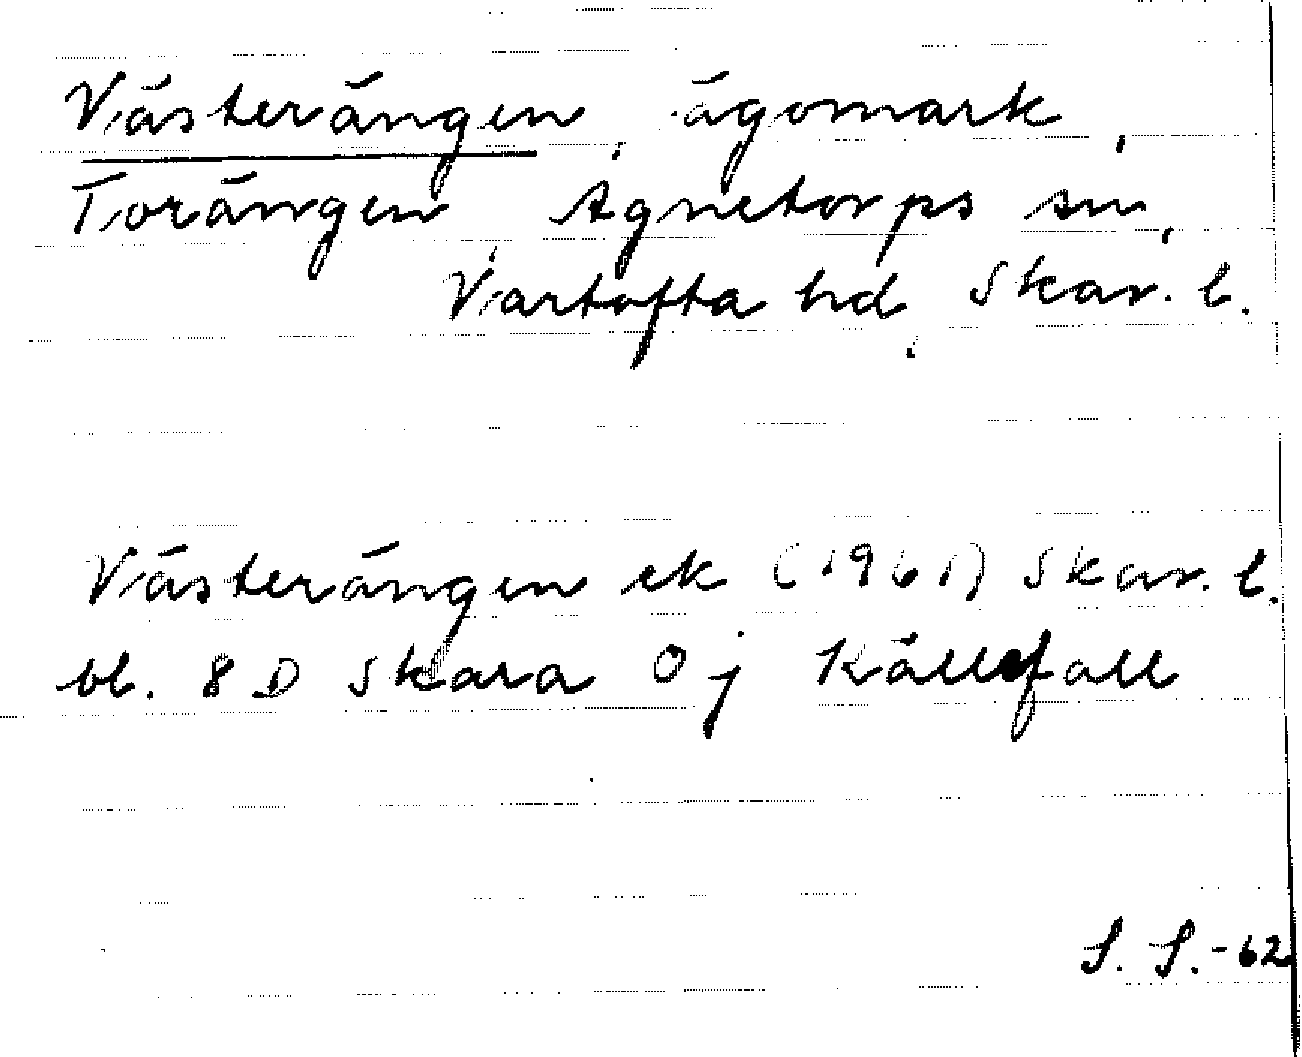 Västerängen, ägomark,
Torängen, Agnetorps sn,
Vartofta hd, Skar. l.
Västerängen ek (1961) Skar. l.
bl. 8 D Skara 0 j Källefall
S. S.-62